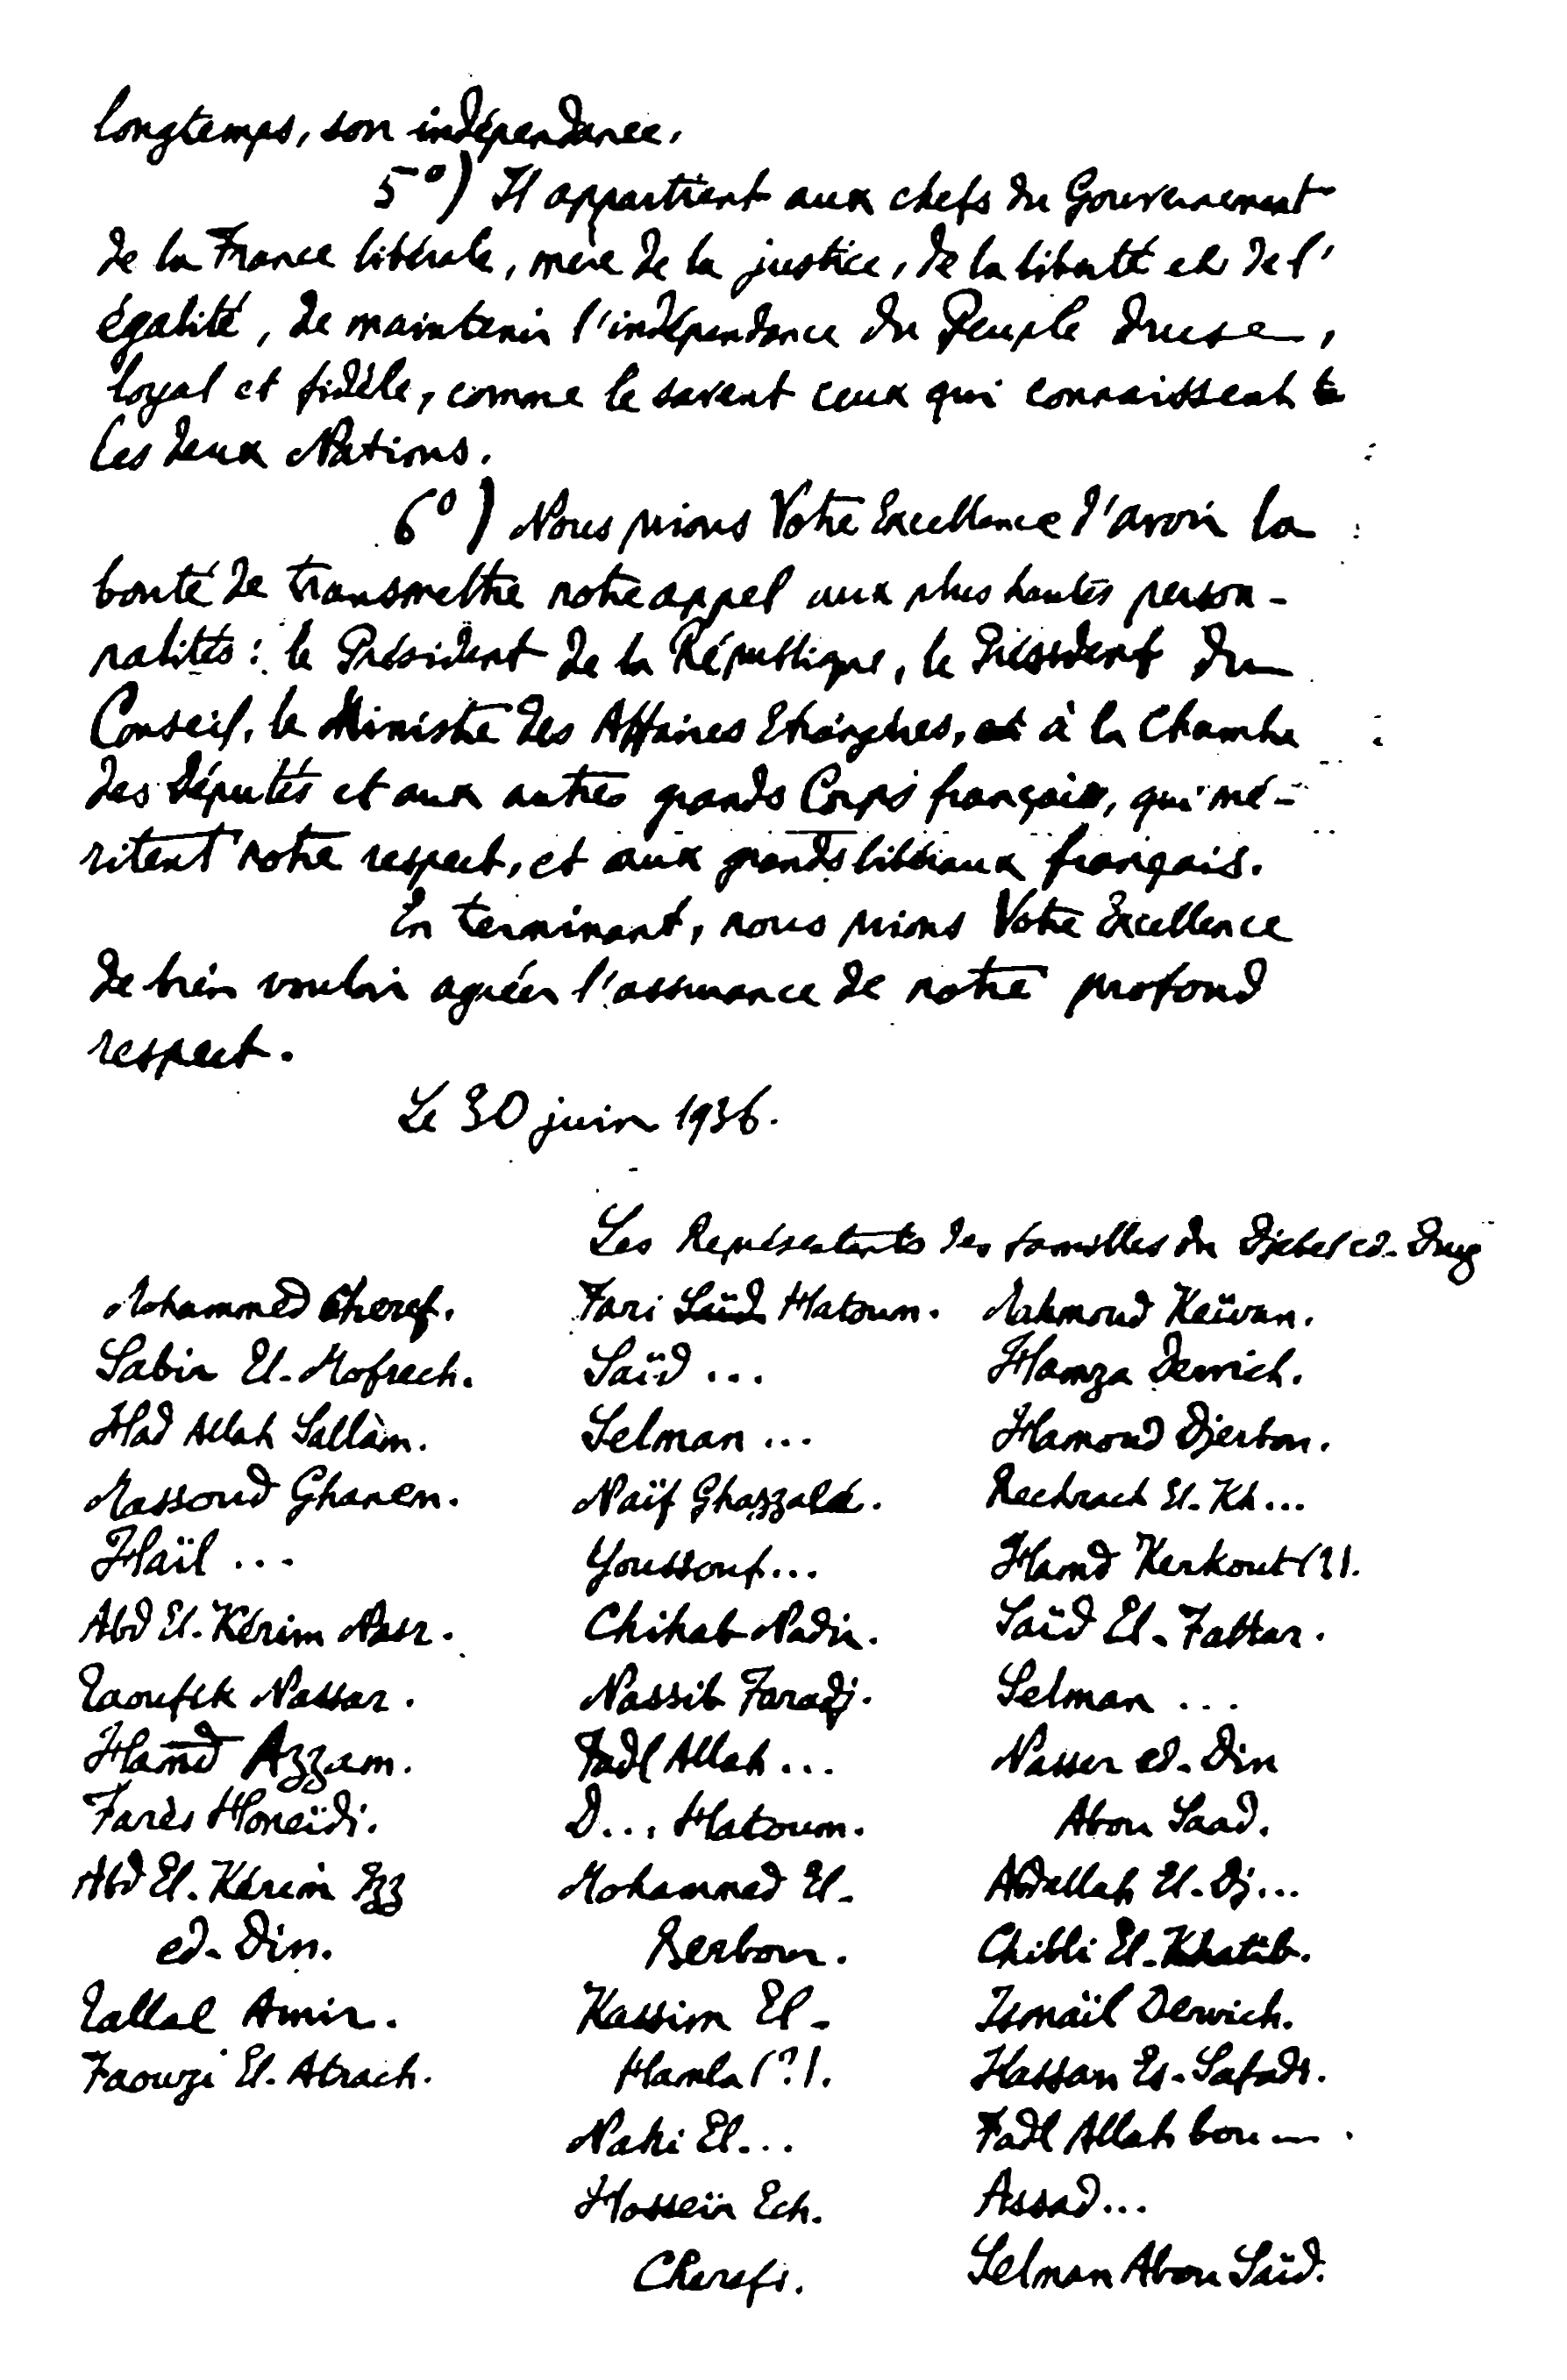 longtemps, son indépendance.
5°) Il appartient aux chefs du Gouvernement
de la France libérale, mère de la justice, de la liberté et de l'
égalité, de maintenir l'indépendance du Peuple druse,
loyal et fidèle, comme le savent ceux qui connaissent
les deux Nations.
6°) Nous prions Votre Excellence d'avoir la
bonté de transmettre notre appel aux plus hautes person-
nalités : le Président de la République, le Président du
Conseil, le Ministre des Affaires Etrangères, à la Chambre
des Députés et aux autres grands Corps français, qui mé-
ritent notre respect, et aux grands libéraux français.
En terminant, nous prions Votre Excellence
de bien vouloir agréer l'assurance de notre profond
respect.
Le 30 juin 1936.
Les Représentants des familles du Djebel ed-Druz
Mohammed Cheref.
Sabir El-Mofrech.
Had Allah Sallàm.
Massoud Ghanen.
Haïl ...
Abd El-Kérim Nasr.
Taoufik Nassar.
Hamd Azzam.
Farès Honeïdi.
Abd El-Kérim Izz
ed-Din.
Tallal Amir.
Faouzi El-Atrach.
Fari Saïd Hatoum.
Saïd ...
Selman ...
Naïf Ghazzalé.
Youssouf ...
Chihab Nadir.
Nassib Faradj.
Fadl Allah ...
D... Hatoum.
Mohammed El-
Berbour.
Kassim El-
Hamla (?).
Nahi El...
Hosseïn Ech.
Cherefi.
Mahmoud Keïwan.
Hamza Derwich.
Hamoud Djerbou.
Rechrach El-Kh...
Hamd Kerkout (?).
Saïd El-Fattar.
Selman ...
Nasser ed-Din
Abou Saad.
Abdallah El-Dj...
Chibli El-Khatib.
Ismaïl Derwich.
Hassan Es-Safadi.
Fadl Allah bou ... .
Assad...
Selman Abou Saïd.